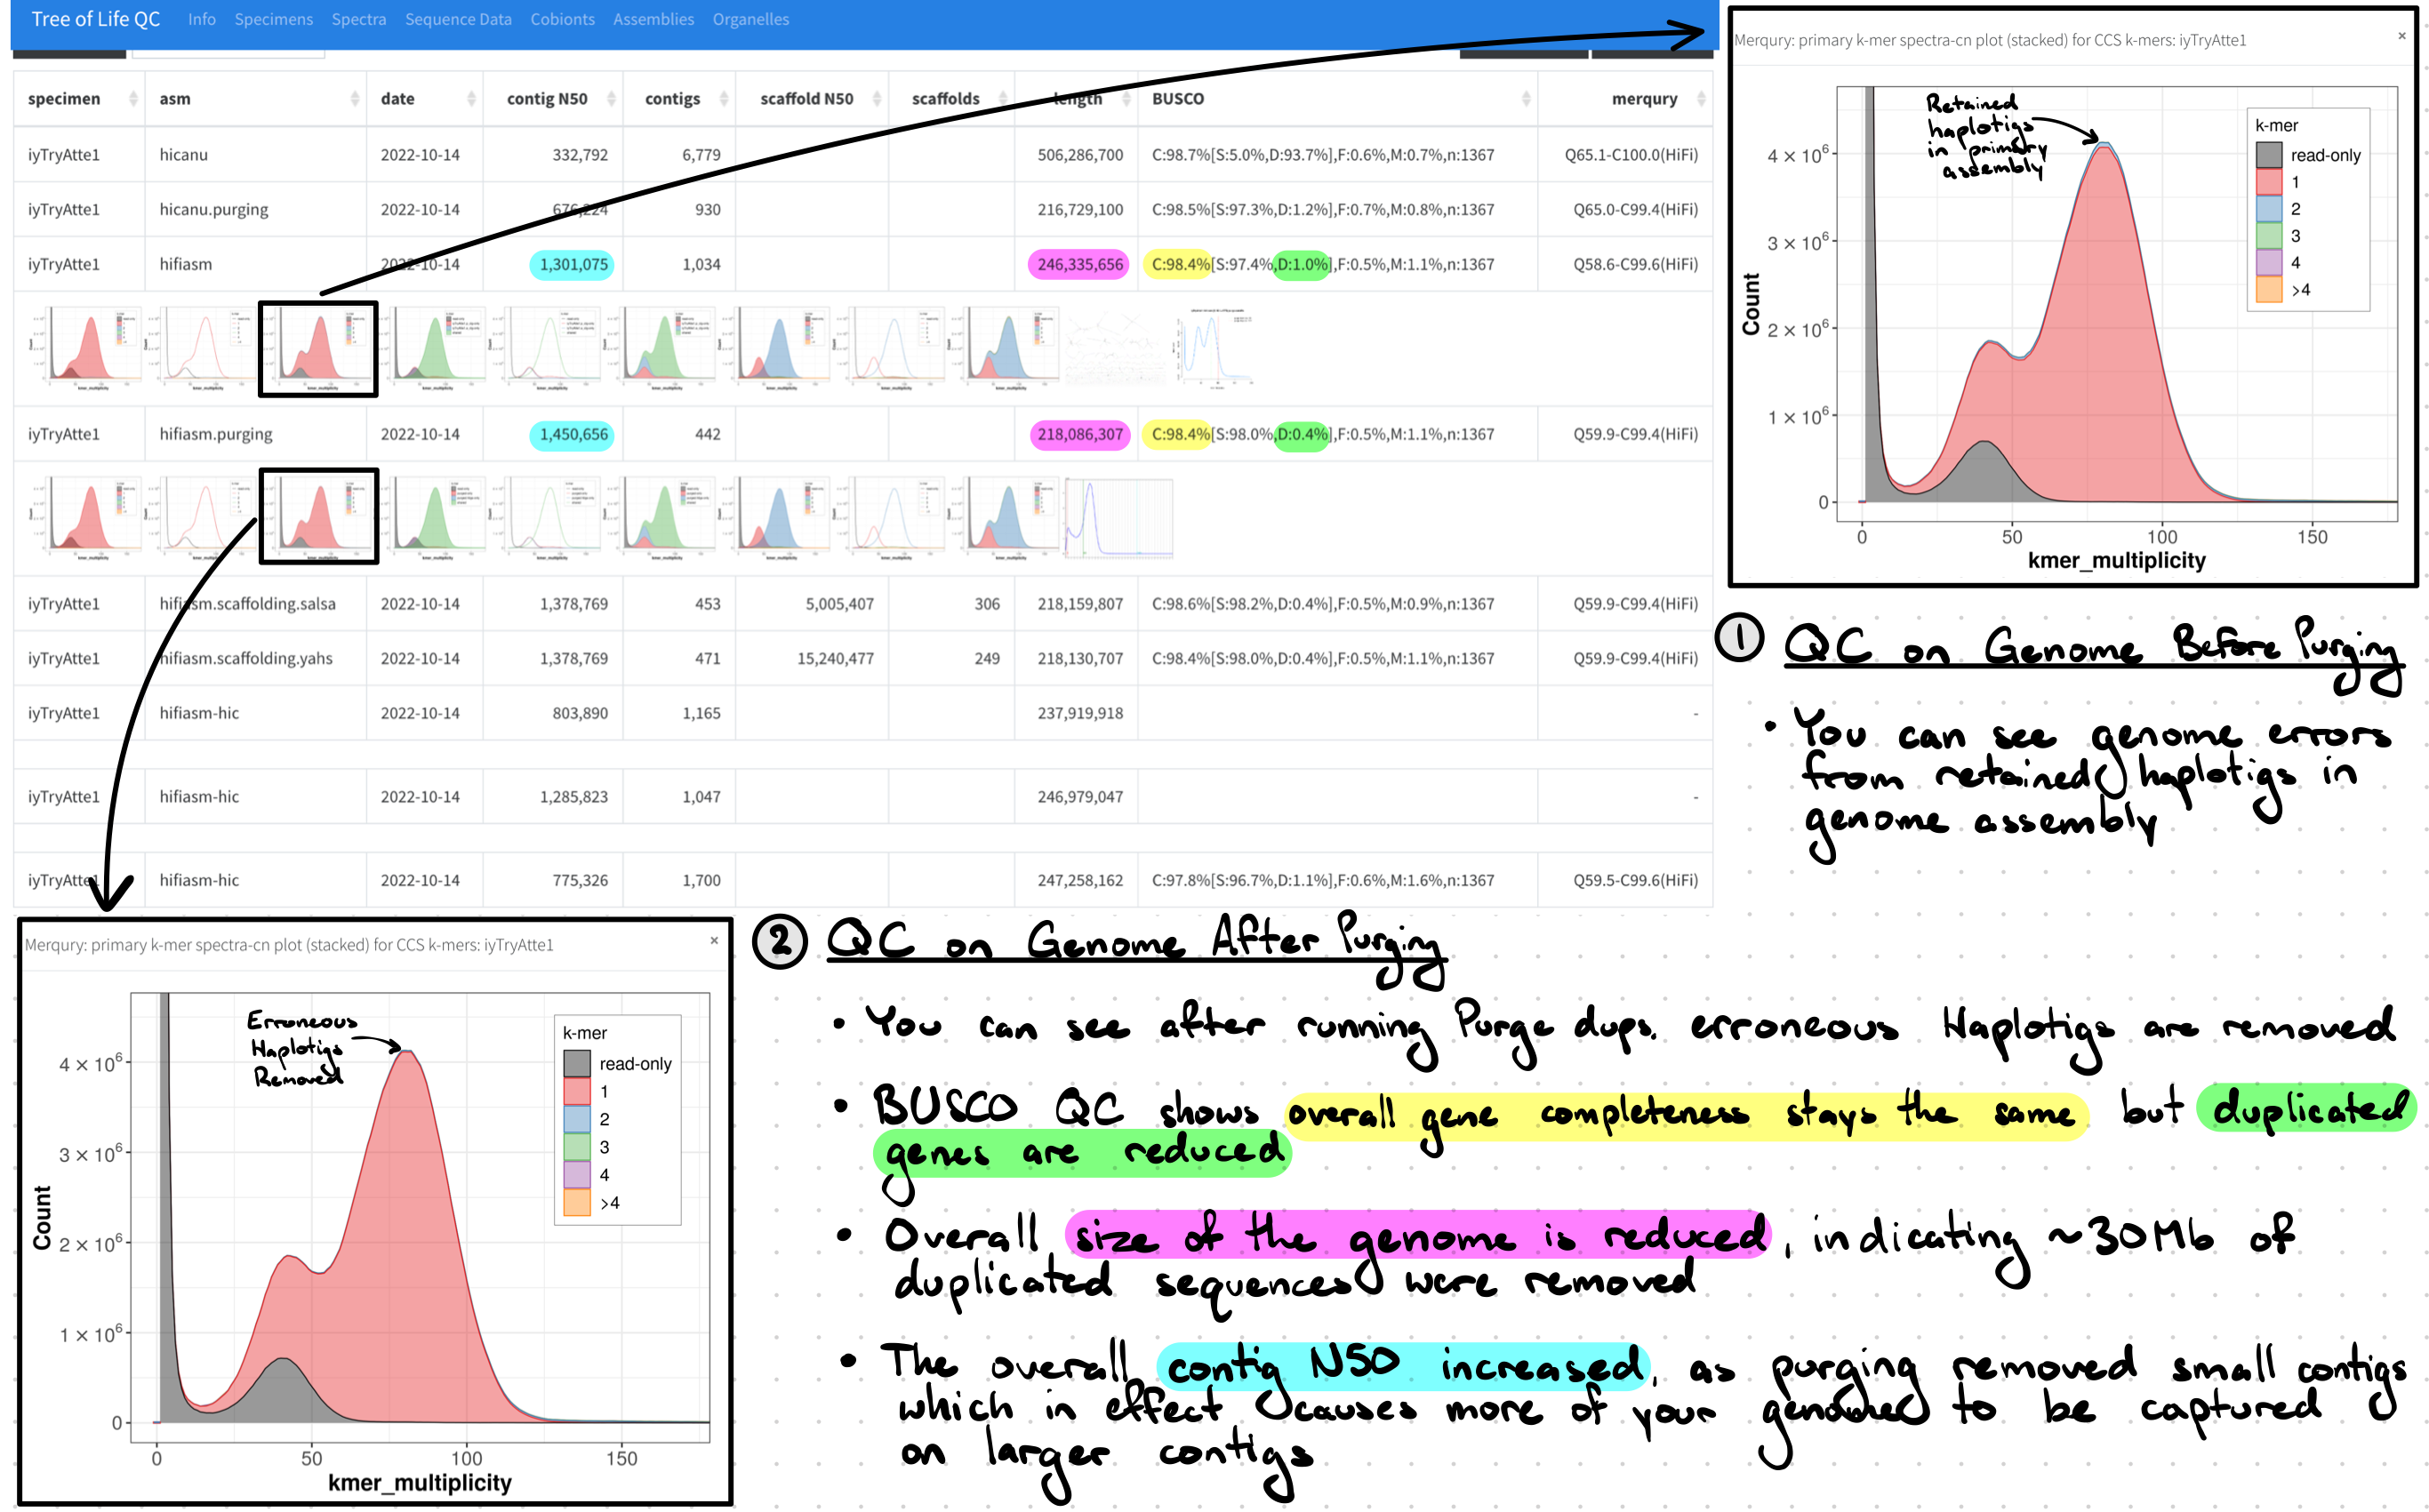 Tree of Life QC Info Specimens Spectra Sequence Data Cobionts Assemblies Organelles
specimen asm date contig N50 contigs scaffold N50 scaffolds length BUSCO merqury
iyTryAtte1 hicanu 2022-10-14 332,792 6,779 506,286,700 C:98.7%[S:5.0%,D:93.7%],F:0.6%,M:0.7%,n:1367 Q65.1-C100.0(HiFi)
iyTryAtte1 hicanu.purging 2022-10-14 676,224 930 216,729,100 C:98.5%[S:97.3%,D:1.2%],F:0.7%,M:0.8%,n:1367 Q65.0-C99.4(HiFi)
iyTryAtte1 hifiasm 2022-10-14 1,301,075 1,034 246,335,656 C:98.4%[S:97.4%,D:1.0%],F:0.5%,M:1.1%,n:1367 Q58.6-C99.6(HiFi)
iyTryAtte1 hifiasm.purging 2022-10-14 1,450,656 442 218,086,307 C:98.4%[S:98.0%,D:0.4%],F:0.5%,M:1.1%,n:1367 Q59.9-C99.4(HiFi)
iyTryAtte1 hifiasm.scaffolding.salsa 2022-10-14 1,378,769 453 5,005,407 306 218,159,807 C:98.6%[S:98.2%,D:0.4%],F:0.5%,M:0.9%,n:1367 Q59.9-C99.4(HiFi)
iyTryAtte1 hifiasm.scaffolding.yahs 2022-10-14 1,378,769 471 15,240,477 249 218,130,707 C:98.4%[S:98.0%,D:0.4%],F:0.5%,M:1.1%,n:1367 Q59.9-C99.4(HiFi)
iyTryAtte1 hifiasm-hic 2022-10-14 803,890 1,165 237,919,918 -
iyTryAtte1 hifiasm-hic 2022-10-14 1,285,823 1,047 246,979,047 -
iyTryAtte1 hifiasm-hic 2022-10-14 775,326 1,700 247,258,162 C:97.8%[S:96.7%,D:1.1%],F:0.6%,M:1.6%,n:1367 Q59.5-C99.6(HiFi)
Merqury: primary k-mer spectra-cn plot (stacked) for CCS k-mers: iyTryAtte1 ×
Retained
haplotigs
in primary
assembly
k-mer
read-only
1
2
3
4
>4
4 × 10⁶
3 × 10⁶
2 × 10⁶
1 × 10⁶
0
Count
0 50 100 150
kmer_multiplicity
1 QC on Genome Before Purging
• You can see genome errors
from retained haplotigs in
genome assembly
Merqury: primary k-mer spectra-cn plot (stacked) for CCS k-mers: iyTryAtte1 ×
Erroneous
Haplotigs
Removed
k-mer
read-only
1
2
3
4
>4
4 × 10⁶
3 × 10⁶
2 × 10⁶
1 × 10⁶
0
Count
0 50 100 150
kmer_multiplicity
2 QC on Genome After Purging
• You can see after running Purge dups. erroneous Haplotigs are removed
• BUSCO QC shows overall gene completeness stays the same but duplicated
genes are reduced
• Overall size of the genome is reduced, indicating ~30Mb of
duplicated sequences were removed
• The overall contig N50 increased, as purging removed small contigs
which in effect causes more of your genome to be captured
on larger contigs